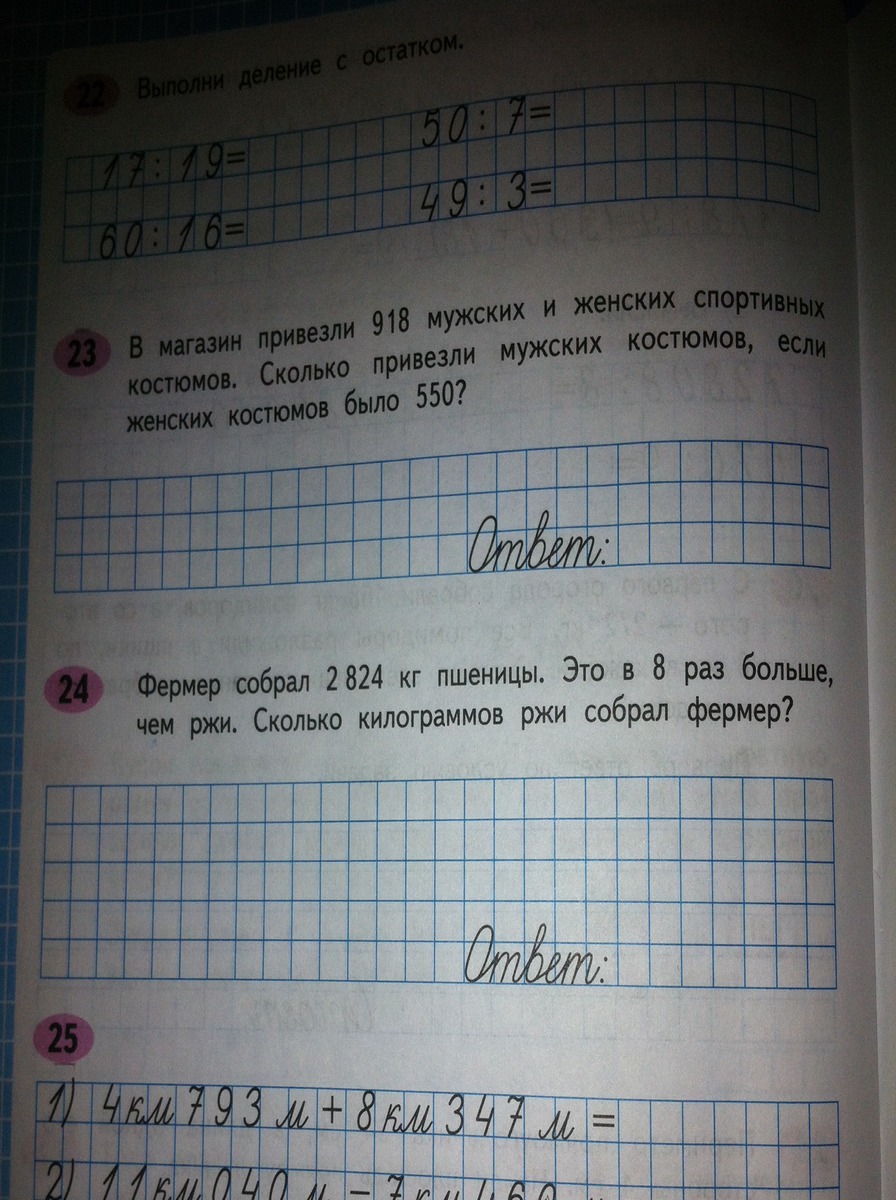 22 Выполни деление с остатком.
17 : 19 =
50 : 7 =
60 : 16 =
49 : 3 =
23 В магазин привезли 918 мужских и женских спортивных
костюмов. Сколько привезли мужских костюмов, если
женских костюмов было 550?
Ответ:
24 Фермер собрал 2 824 кг пшеницы. Это в 8 раз больше,
чем ржи. Сколько килограммов ржи собрал фермер?
Ответ:
25
1) 4 км 793 м + 8 км 347 м =
2) 11 км 040 м – 7 км 460